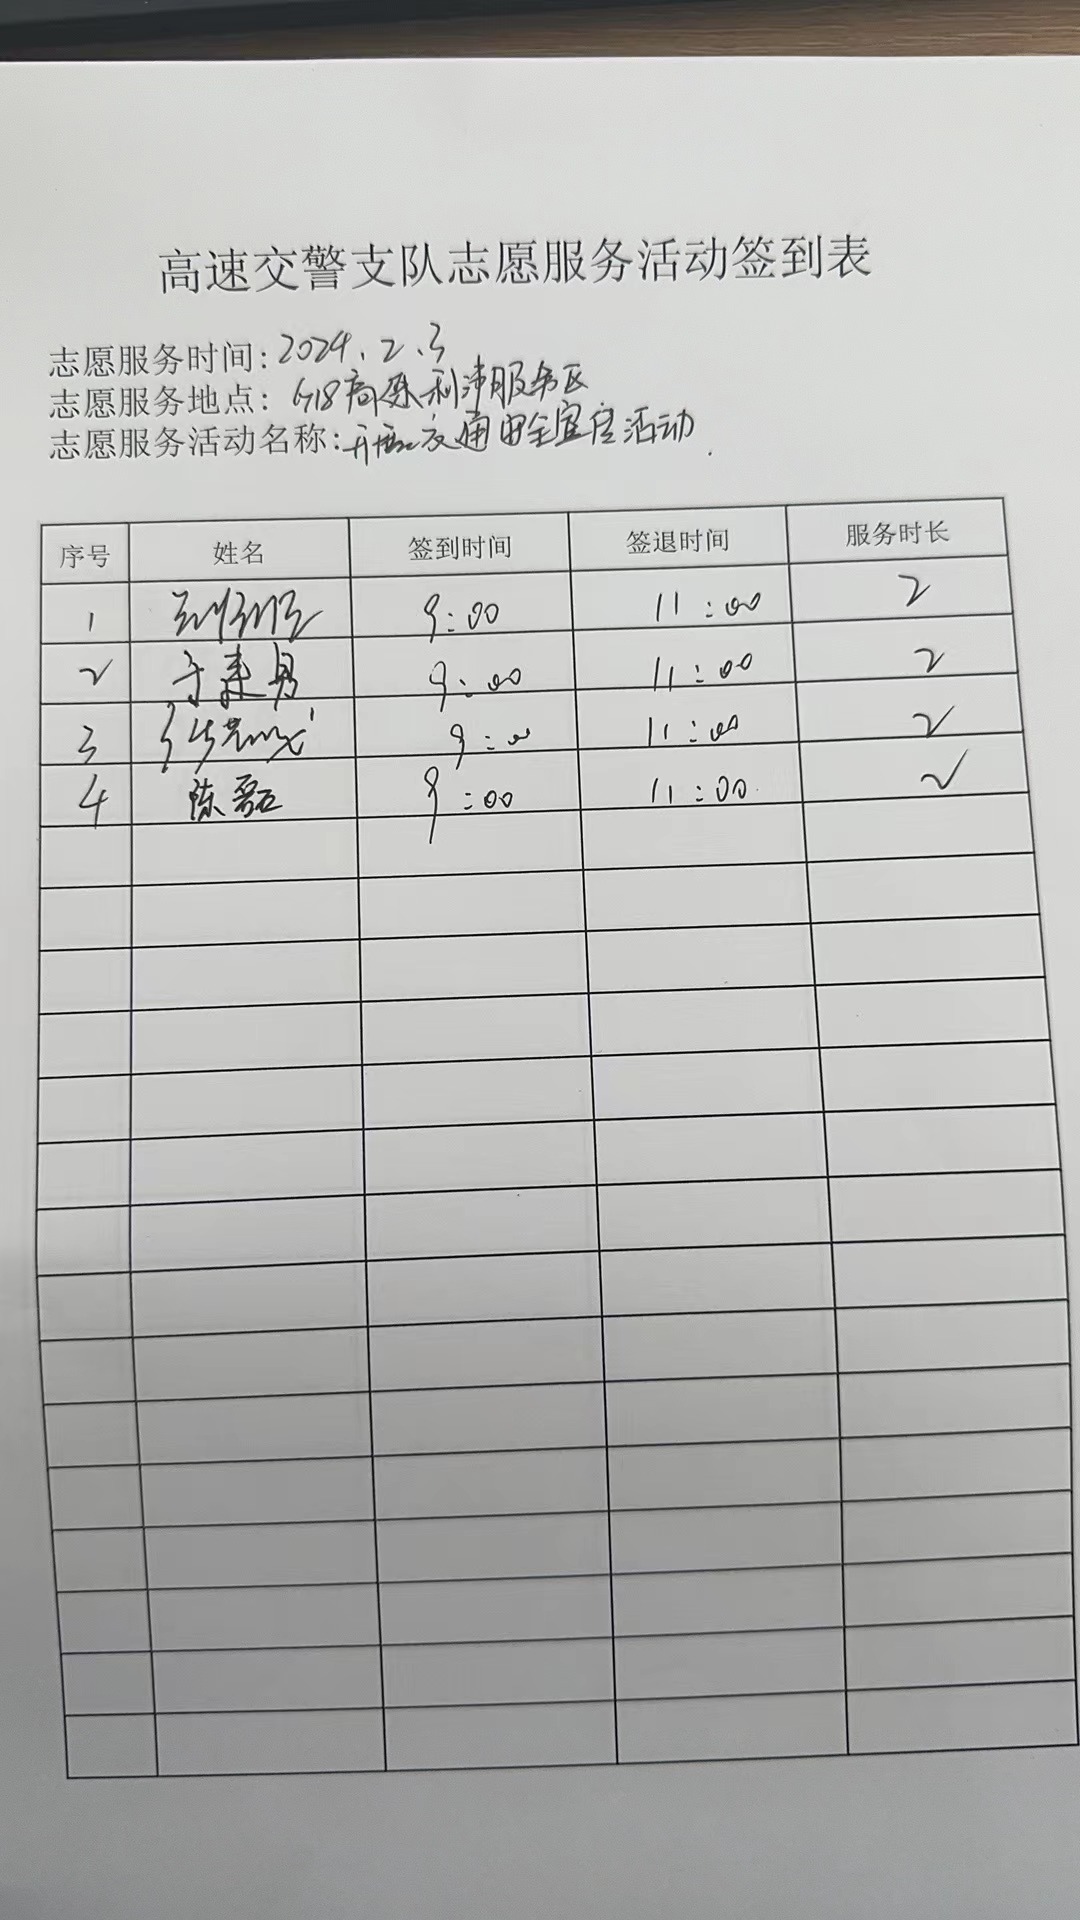 高速交警支队志愿服务活动签到表
志愿服务时间：2024.2.3
志愿服务地点：G18高速利津服务区
志愿服务活动名称：开展交通安全宣传活动.
序号 姓名 签到时间 签退时间 服务时长
1 9:00 11:00 2
2 于建勇 9:00 11:00 2
3 9:00 11:00 2
4 陈磊 9:00 11:00 2